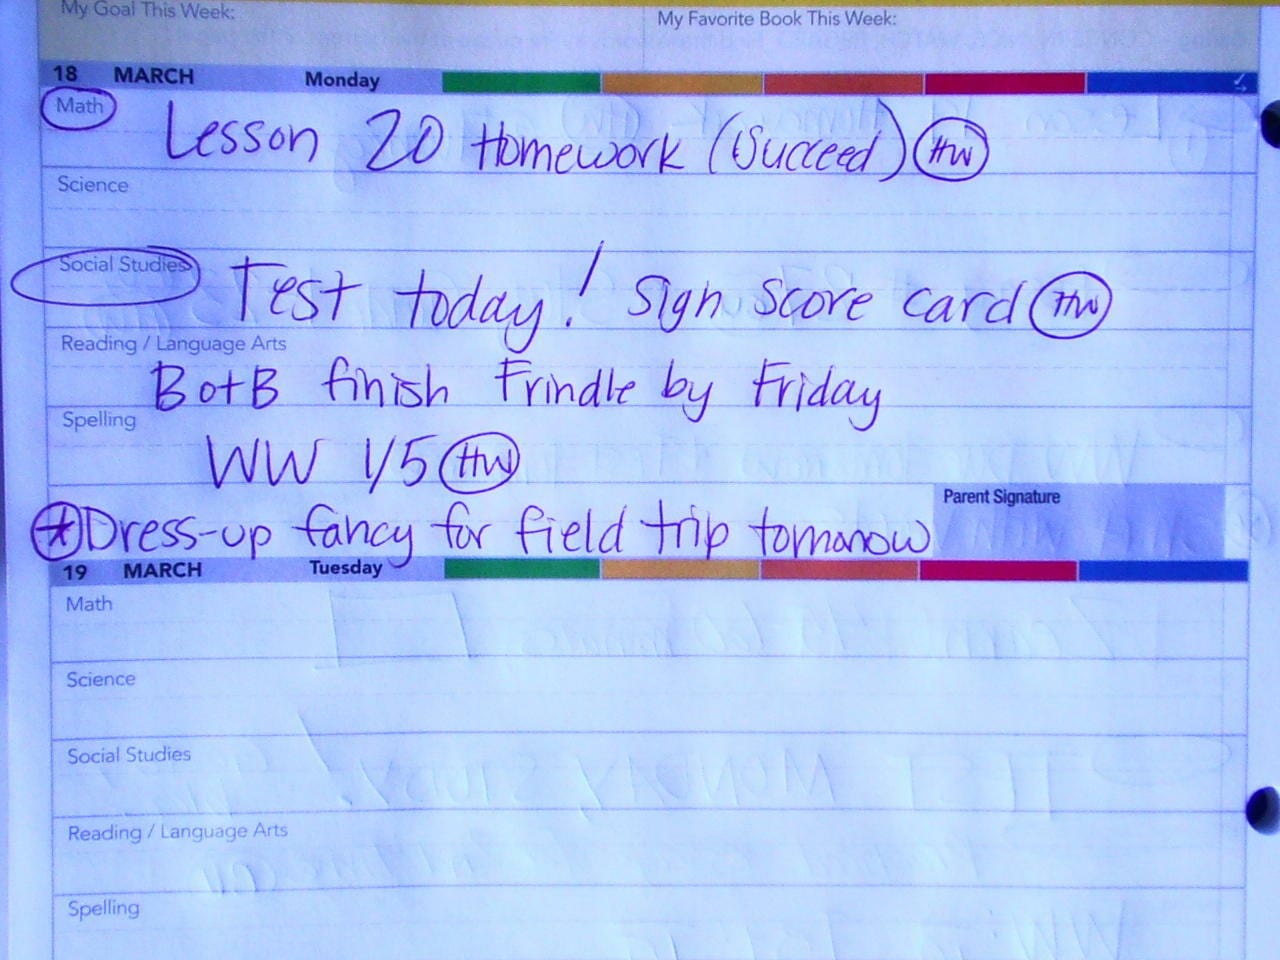 My Goal This Week:
My Favorite Book This Week:
18 MARCH Monday
Math
Lesson 20 Homework (Succeed) HW
Science
Social Studies
Test today! Sign score card HW
Reading / Language Arts
BotB finish Frindle by Friday
Spelling
WW 1/5 HW
Parent Signature
* Dress-up fancy for field trip tomorrow
19 MARCH Tuesday
Math
Science
Social Studies
Reading / Language Arts
Spelling